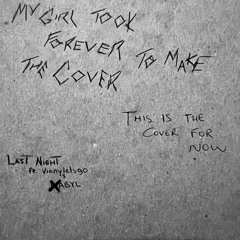 MY GIRL TOOK
FOREVER TO MAKE
THE COVER
THIS IS THE
COVER FOR
NOW
LAST NIGHT
ft. Vinnyletsgo
XABYL